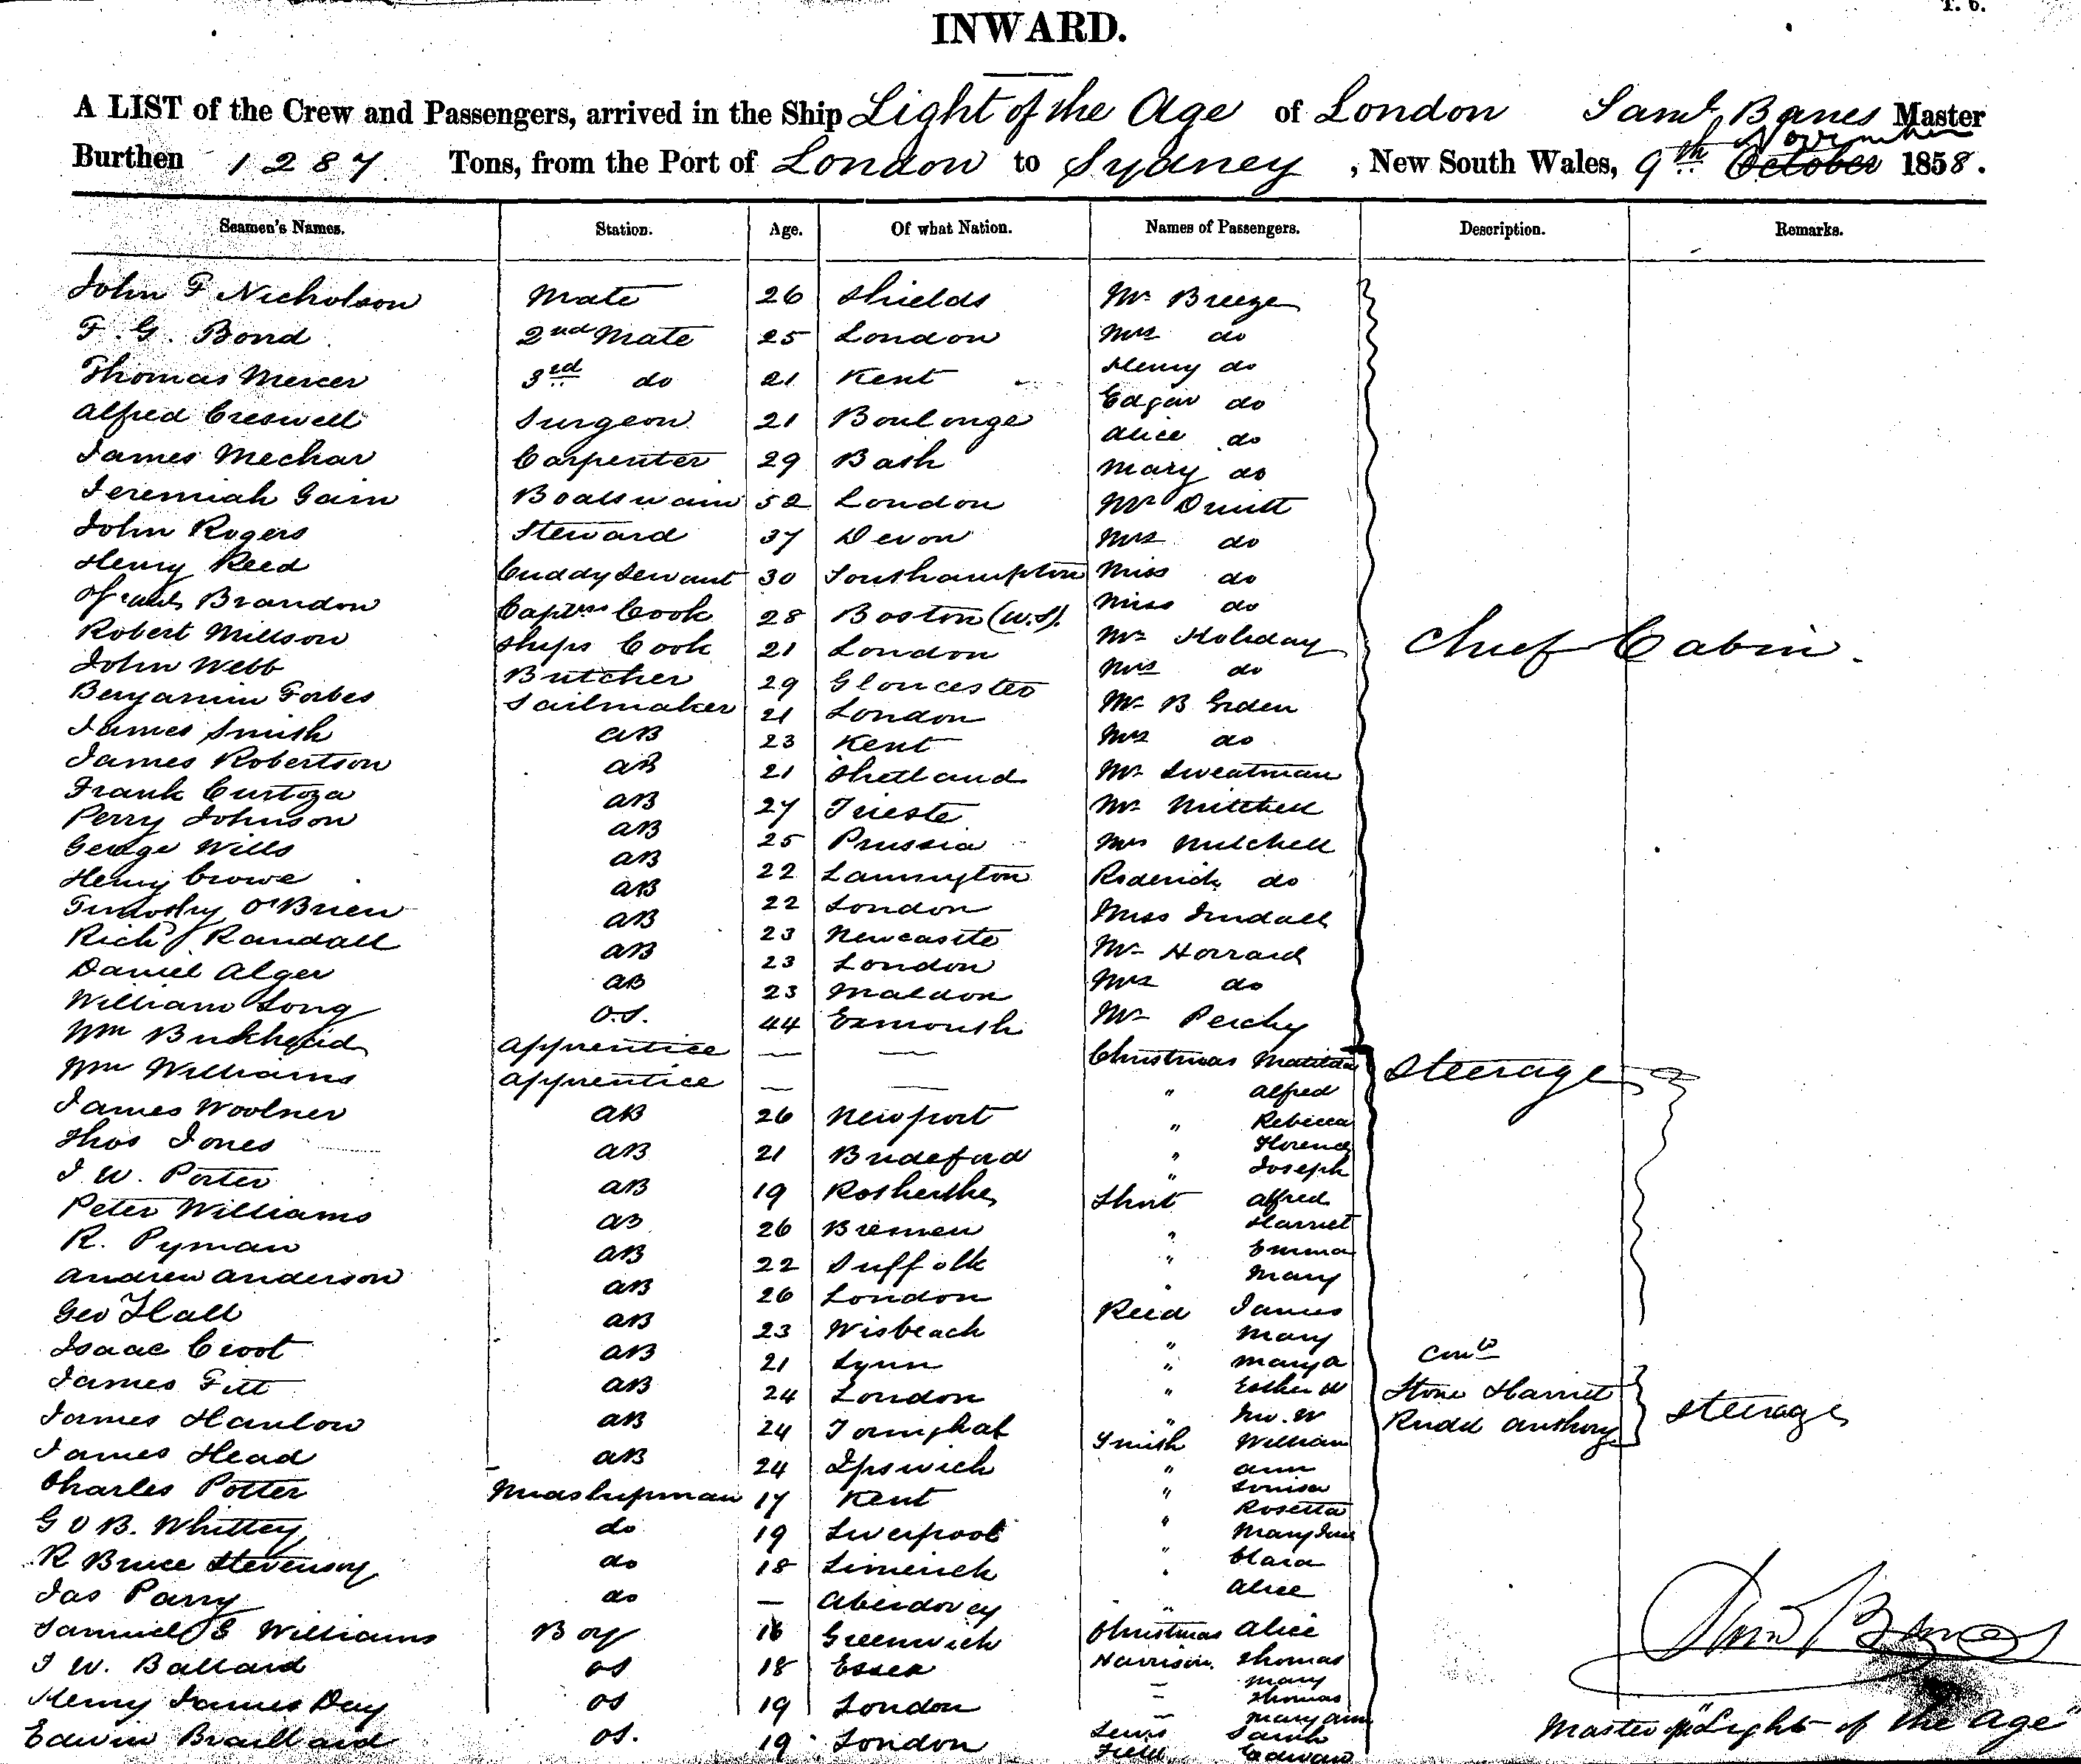 T. 6.
INWARD.
A LIST of the Crew and Passengers, arrived in the Ship Light of the Age of London Saml Banes Master
Burthen 1287 Tons, from the Port of London to Sydney, New South Wales, 9th October November 1858.
Seamen's Names. Station. Age. Of what Nation. Names of Passengers. Description. Remarks.
John F Nicholson Mate 26 Shields Mr Breeze
F. G. Bond 2nd Mate 25 London Mrs do
Thomas Mercer 3rd do 21 Kent Henry do
Alfred Creswell Surgeon 21 Boulonge Edgar do
Alice do
James Mechar Carpenter 29 Bath Mary do
Jeremiah Gain Boatswain 52 London Mr Druitt
John Rogers Steward 37 Devon Mrs do
Henry Reed Cuddy Servant 30 Southampton Miss do
Brandon Captns Cook 28 Boston (U.S). Miss do
Robert Millson Ships Cook 21 London Mr Holiday Chief Cabin.
John Webb Butcher 29 Gloucester Mrs do
Benjamin Forbes Sailmaker 21 London Mr B
James Smith AB 23 Kent Mrs do
James Robertson AB 21 Shetland Mr Sweatman
Frank Curtoza AB 27 Trieste Mr Mitchell
Perry Johnson AB 25 Prussia Mrs Mitchell
George Wills AB 22 Roderick do
Henry Crowe AB 22 London Miss
Timothy O'Brien AB 23 Newcastle Mr
Richd Randall AB 23 London Mrs do
Daniel Alger AB 23 Maldon Mr
William Long O.S. 44 Exmouth
Wm Apprentice — — Christmas Matilda Steerage
Wm Williams Apprentice — — " Alfred
James Woolner AB 26 Newport " Rebecca
" Florence
Thos Jones AB 21 Bideford " Joseph
J. W. Porter AB 19 Rotherhithe Alfred
Peter Williams AB 26 Bremen " Harriet
R. Pyman AB 22 Suffolk " Emma
" Mary
Andrew Anderson AB 26 London Reed James
Geo Hall AB 23 Wisbeach " Mary
Isaac Croot AB 21 Lynn " Mary A
James Fitt AB 24 London " Esther W Stone Harriet
" Jno. W Rudd Anthony Steerage
James Hanlow AB 24 Smith William
James Head AB 24 Ipswich " Ann
Charles Potter Midshipman 17 Kent " Louisa
" Rosetta
G O B. Whittey do 19 Liverpool " Mary Jane
R Bruce Stevenson do 18 Limerick " Clara
Jas Parry do — Aberdovey " Alice
Samuel E Williams Boy 16 Greenwich Christmas Alice
J W. Ballard OS 18 Essex Harrison Thomas
Mary
Henry James Day OS 19 London Thomas
Mary Ann
Edwin OS. 19 London Lewis Sarah
Field Edward
Saml Banes
Master of "Light of the Age"